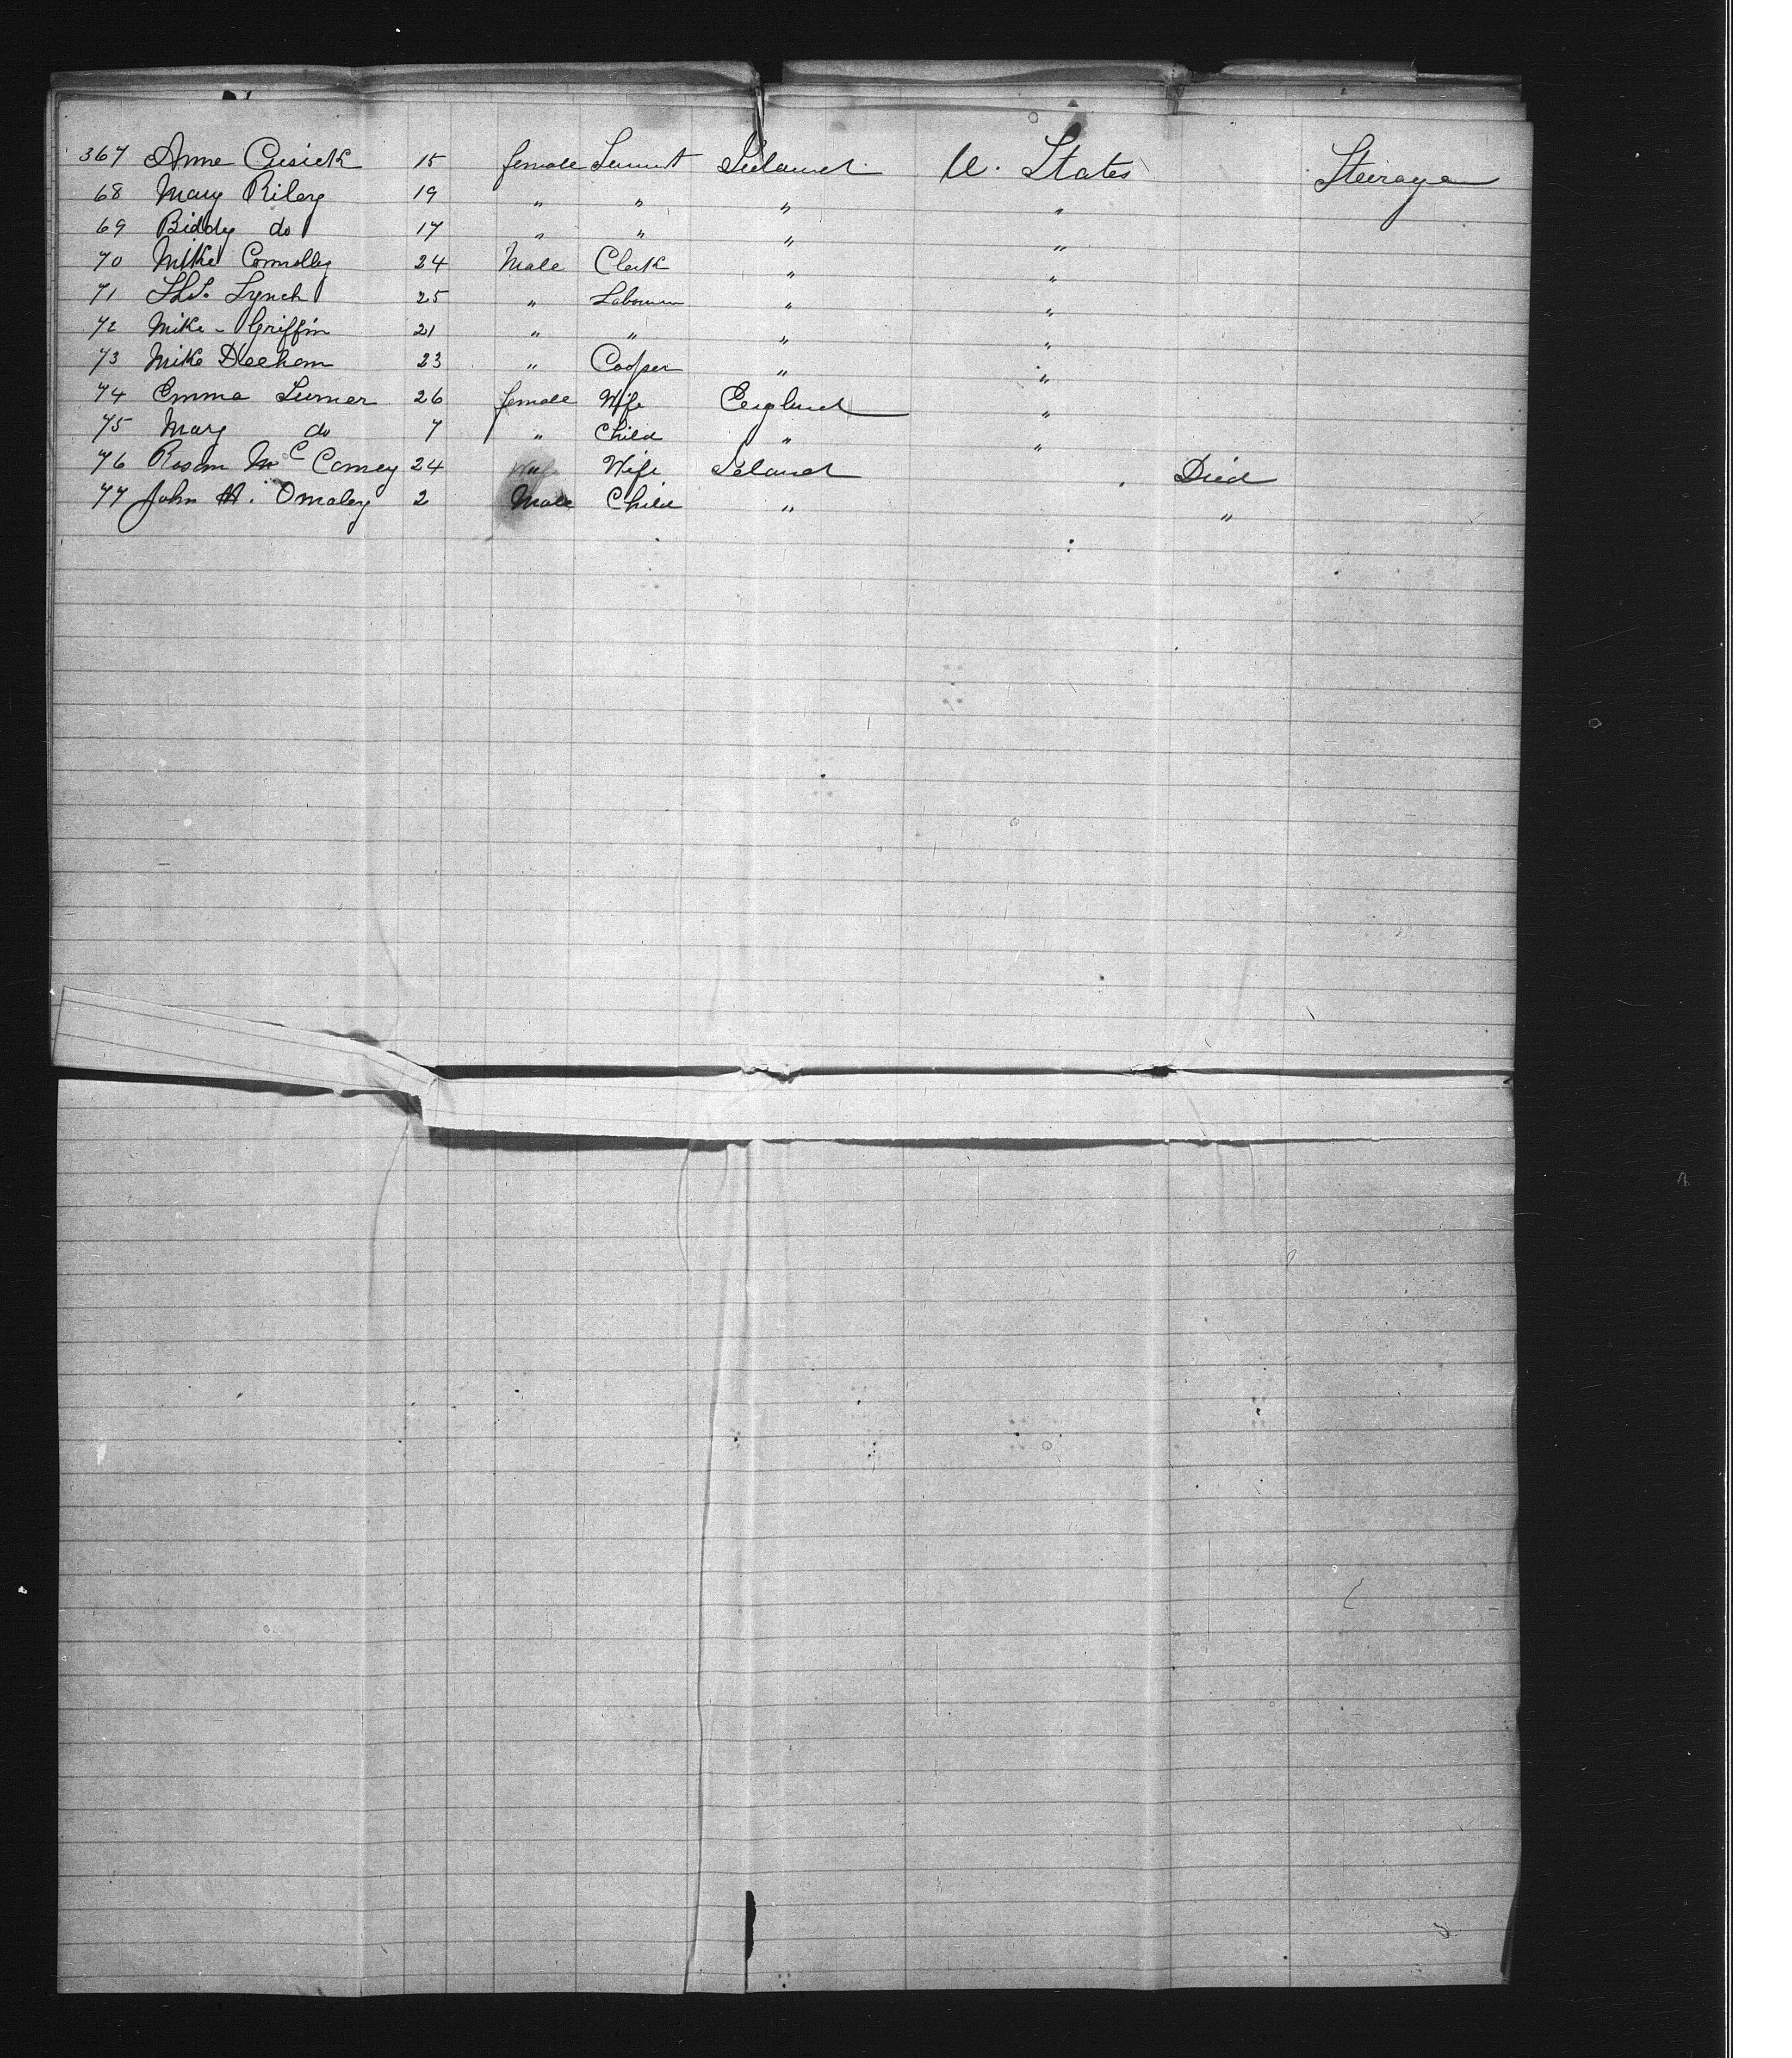 367 Anne Cusick 15 female Servant Ireland U. States Steirage
68 Mary Riley 19 " " " "
69 Biddy do 17 " " " "
70 Mike Connolly 24 Male Clerk " "
71 Ths. Lynch 25 " Labourer " "
72 Mike - Griffin 21 " " " "
73 Mike Deehan 23 " Cooper " "
74 Emma Turner 26 female Wife England "
75 Mary do 7 " Child " "
76 Mc 24 Wife Ireland Died
77 John H. Omaley 2 Male Child " "